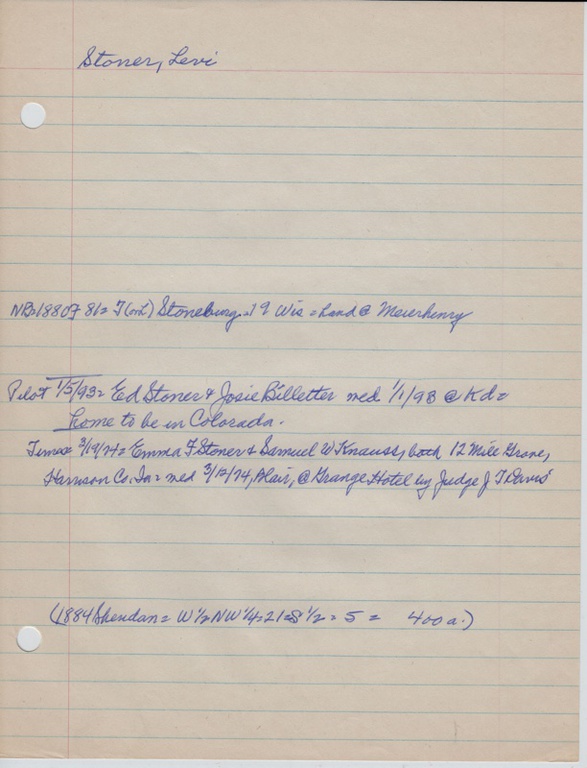 Stoner, Levi
NB=1880 F 81= T (or L) Stoneburg=19 Wis=hand @ Meierhenry
Pilot 1/5/93= Ed Stoner & Josie Billetter med 1/1/93 @ Kd=
home to be in Colorada.
Times 3/19/74= Emma F Stoner & Samuel W Knauss, both 12 Mile Grove,
Harrison Co. Ia= med 3/12/74, Blair, @ Grange Hotel by Judge J T Davis
(1884 Sheridan= W 1/2 NW 1/4=21=S 1/2=5= 400 a.)